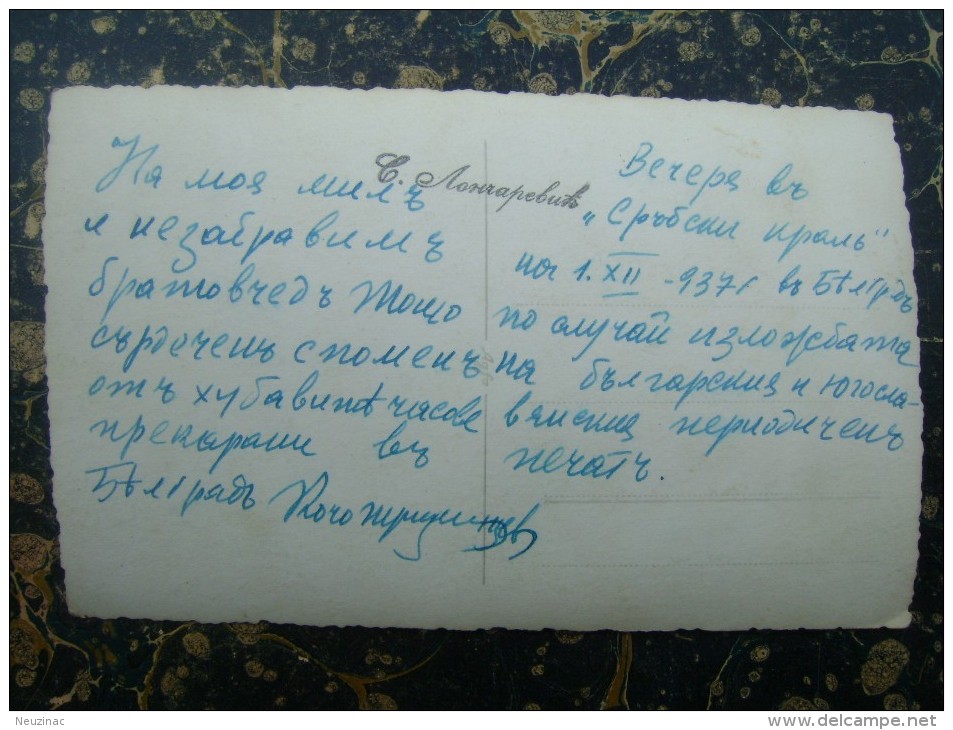 На моя милъ
и незабравимъ
братовчедъ Тошо
сърдеченъ споменъ
отъ хубавитѣ часове
прекарани въ
Бѣлградъ Кочо
С. Лончаревић
Вечеря въ
„Сръбски краль"
на 1. XII -937 г. въ Бѣлградъ
по случай изложбата
на българския и югосла-
вянския периодиченъ
печатъ.
Neuzinac
www.delcampe.net